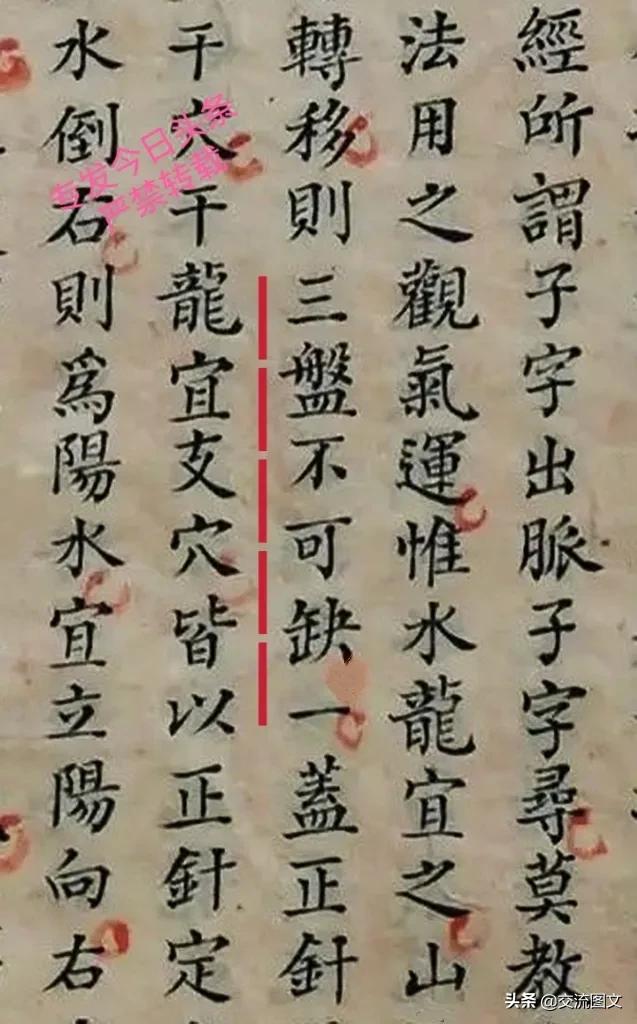 經所謂子字出脈子字尋莫教
法用之觀氣運惟水龍宜之山
轉移則三盤不可缺一蓋正針
干穴干龍宜支穴皆以正針定
水倒右則爲陽水宜立陽向右
专发今日头条
严禁转载
头条 @交流图文